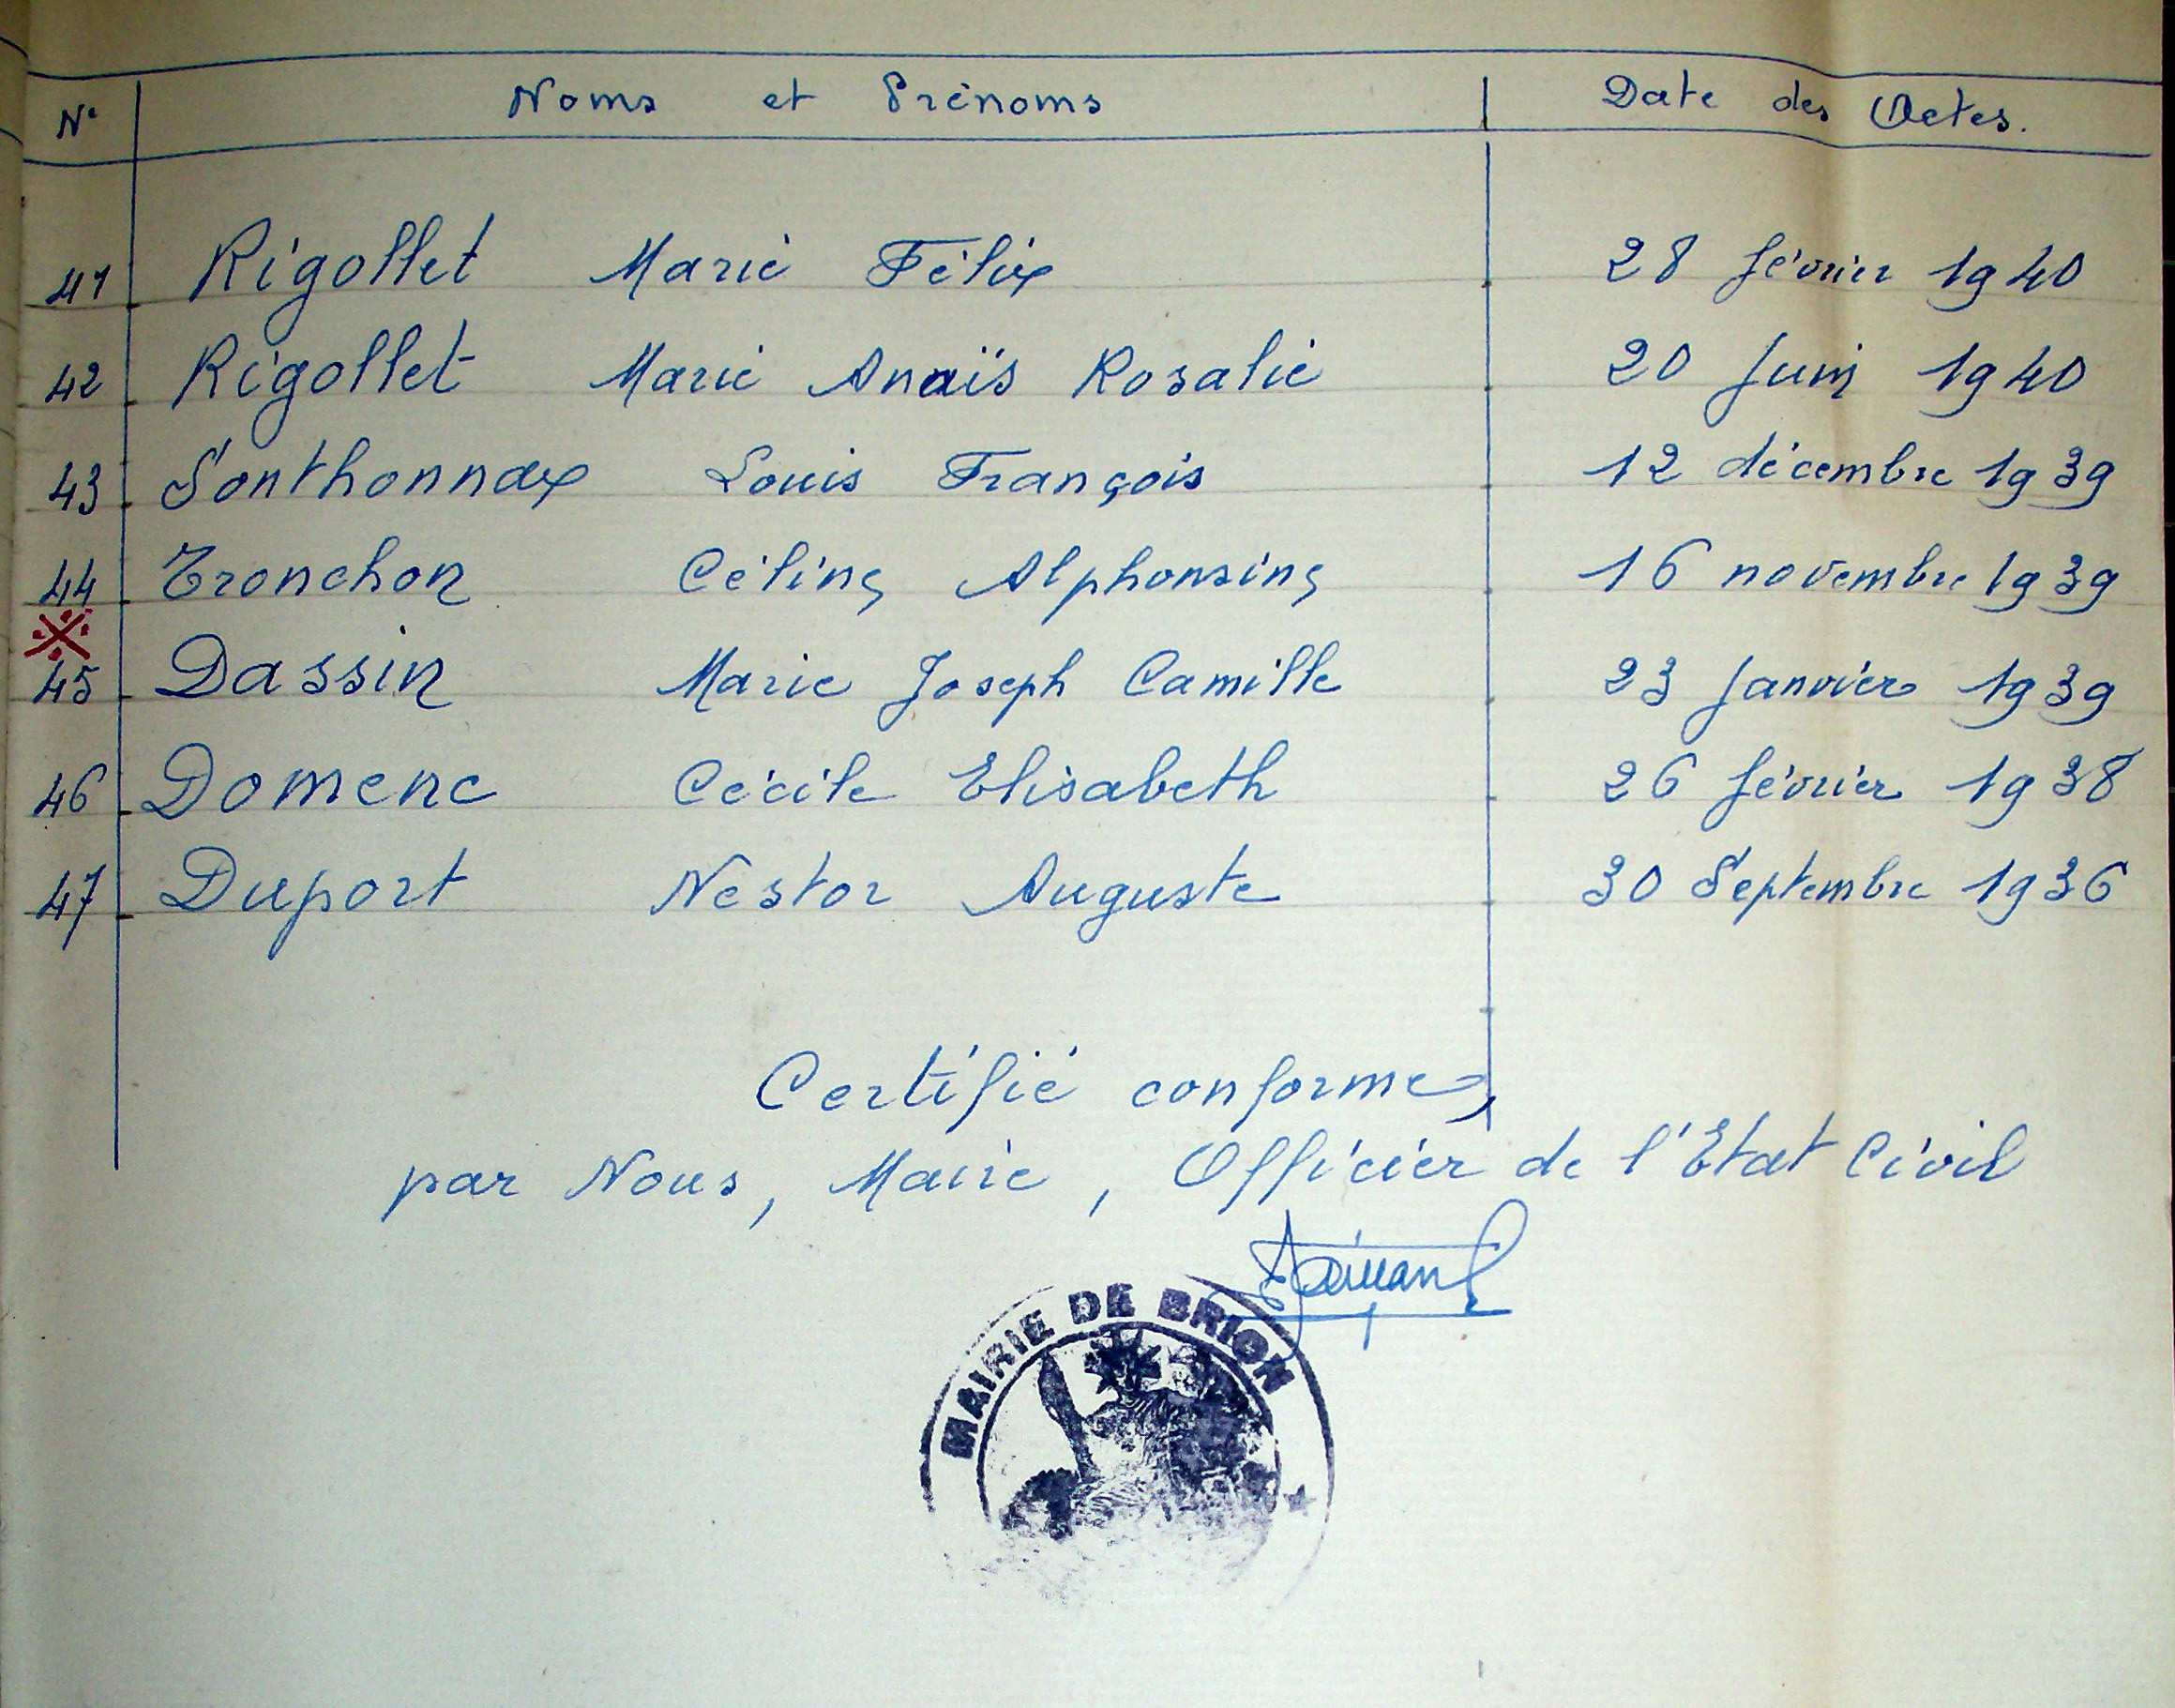 N° Noms et Prénoms Date des Actes.
41 Rigollet Marie Félix 28 février 1940
42 Rigollet Marie Anaïs Rosalie 20 Juin 1940
43 Sonthonnax Louis François 12 décembre 1939
44 Tronchon Céline Alphonsine 16 novembre 1939
45 Dassin Marie Joseph Camille 23 Janvier 1939
46 Domenc Cécile Elisabeth 26 février 1938
47 Duport Nestor Auguste 30 Septembre 1936
Certifié conforme,
par Nous, Maire, Officier de l'Etat Civil
MAIRIE DE BRION